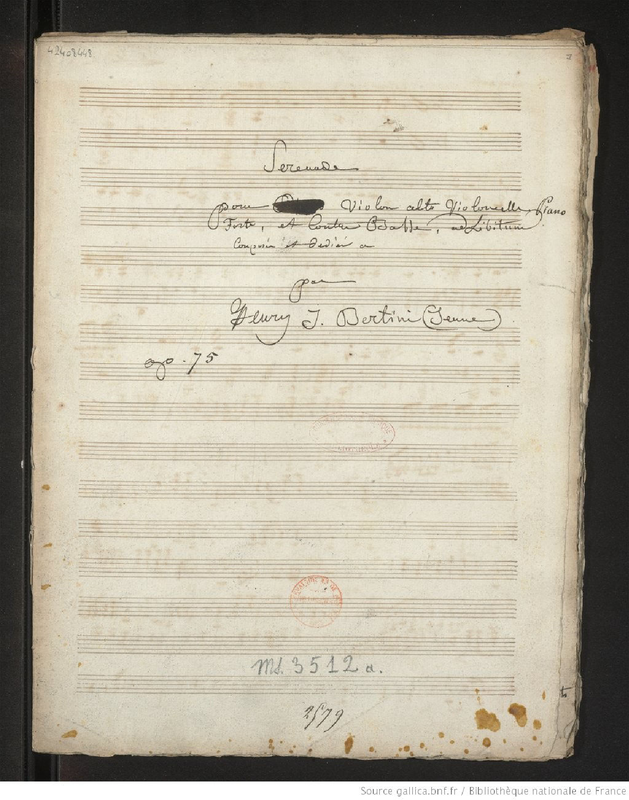 42408448
Serenade
pour Violon alto Violoncelle, Piano
Forte, et Contre Basse, ad Libitum
Composée et dédiée a
par
Henry J. Bertini (Jeune)
op. 75
Ms. 3512 a.
2579
Source gallica.bnf.fr / Bibliothèque nationale de France